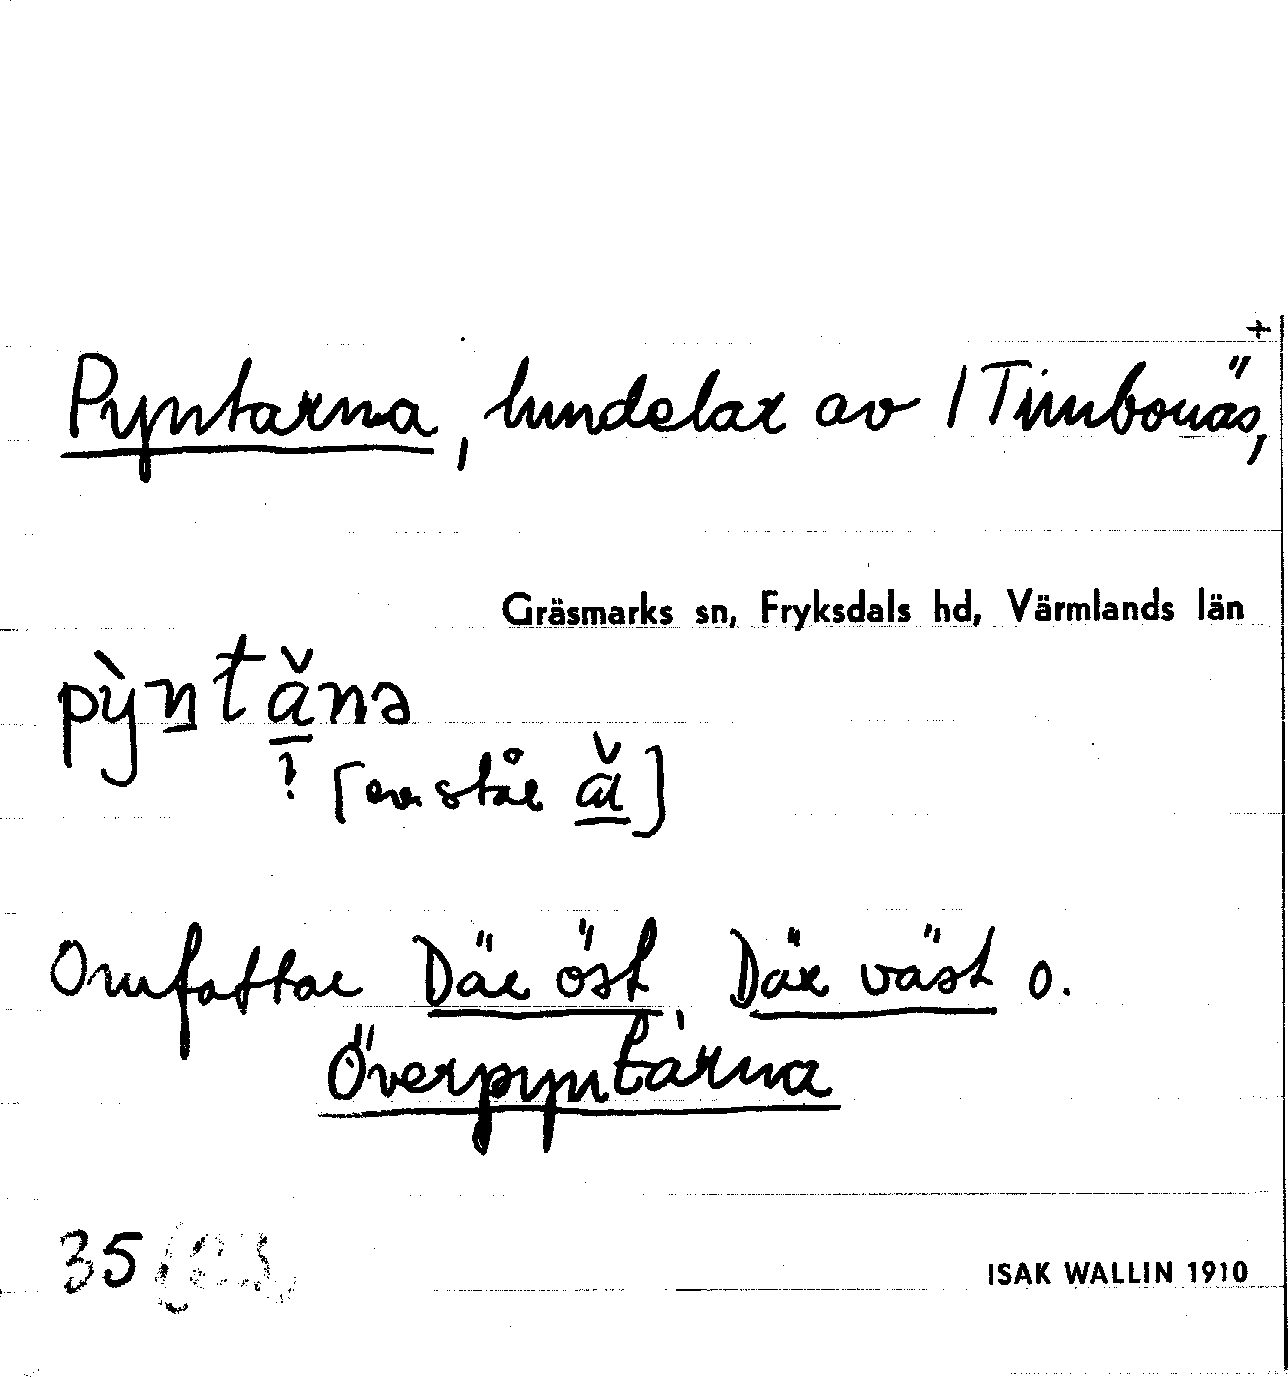 +
Pyntarna, lundelar av 1 Timbonäs,
Gräsmarks sn, Fryksdals hd, Värmlands län
pỳn̲tǎ̲nə
? [ev. står ɑ̲̌]
Omfattar Där öst, Där väst o.
Överpyntarna
35
ISAK WALLIN 1910